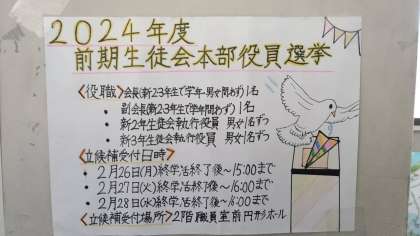 2024年度
前期生徒会本部役員選挙
<役職>会長(新2・3年生で学年・男女問わず)1名
・副会長(新2・3年生で学年問わず)1名
・新2年生徒会執行役員 男女1名ずつ
・新3年生徒会執行役員 男女1名ずつ
<立候補受付日時>
・2月26日(月)終学活終了後~15:00まで
・2月27日(火)終学活終了後~16:00まで
・2月28日(水)終学活終了後~16:00まで
<立候補受付場所>2階職員室前円形ホール